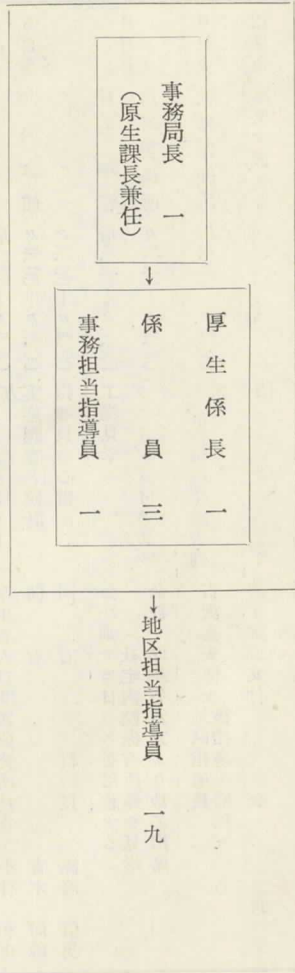 事務局長　一
（原生課長兼任）
↓
厚生係長　一
係員　三
事務担当指導員　一
↓
地区担当指導員　一九